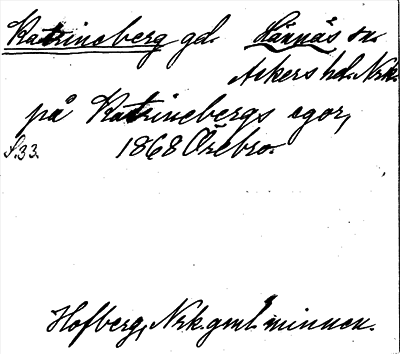 Katrineberg gd. Lännäs sn.
Askers hd. Nrk.
på Katrinebergs egor,
s.33. 1868 Örebro.
Hofberg, Nrk. gml. minnen.